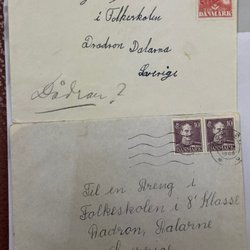 DANMARK
i Folkeskolen
Dradron Dalarna
Sverige
Dådran?
DANMARK DANMARK
Til en Dreng i
Folkeskolen i 8' Klasse
Dadron, Dalarne